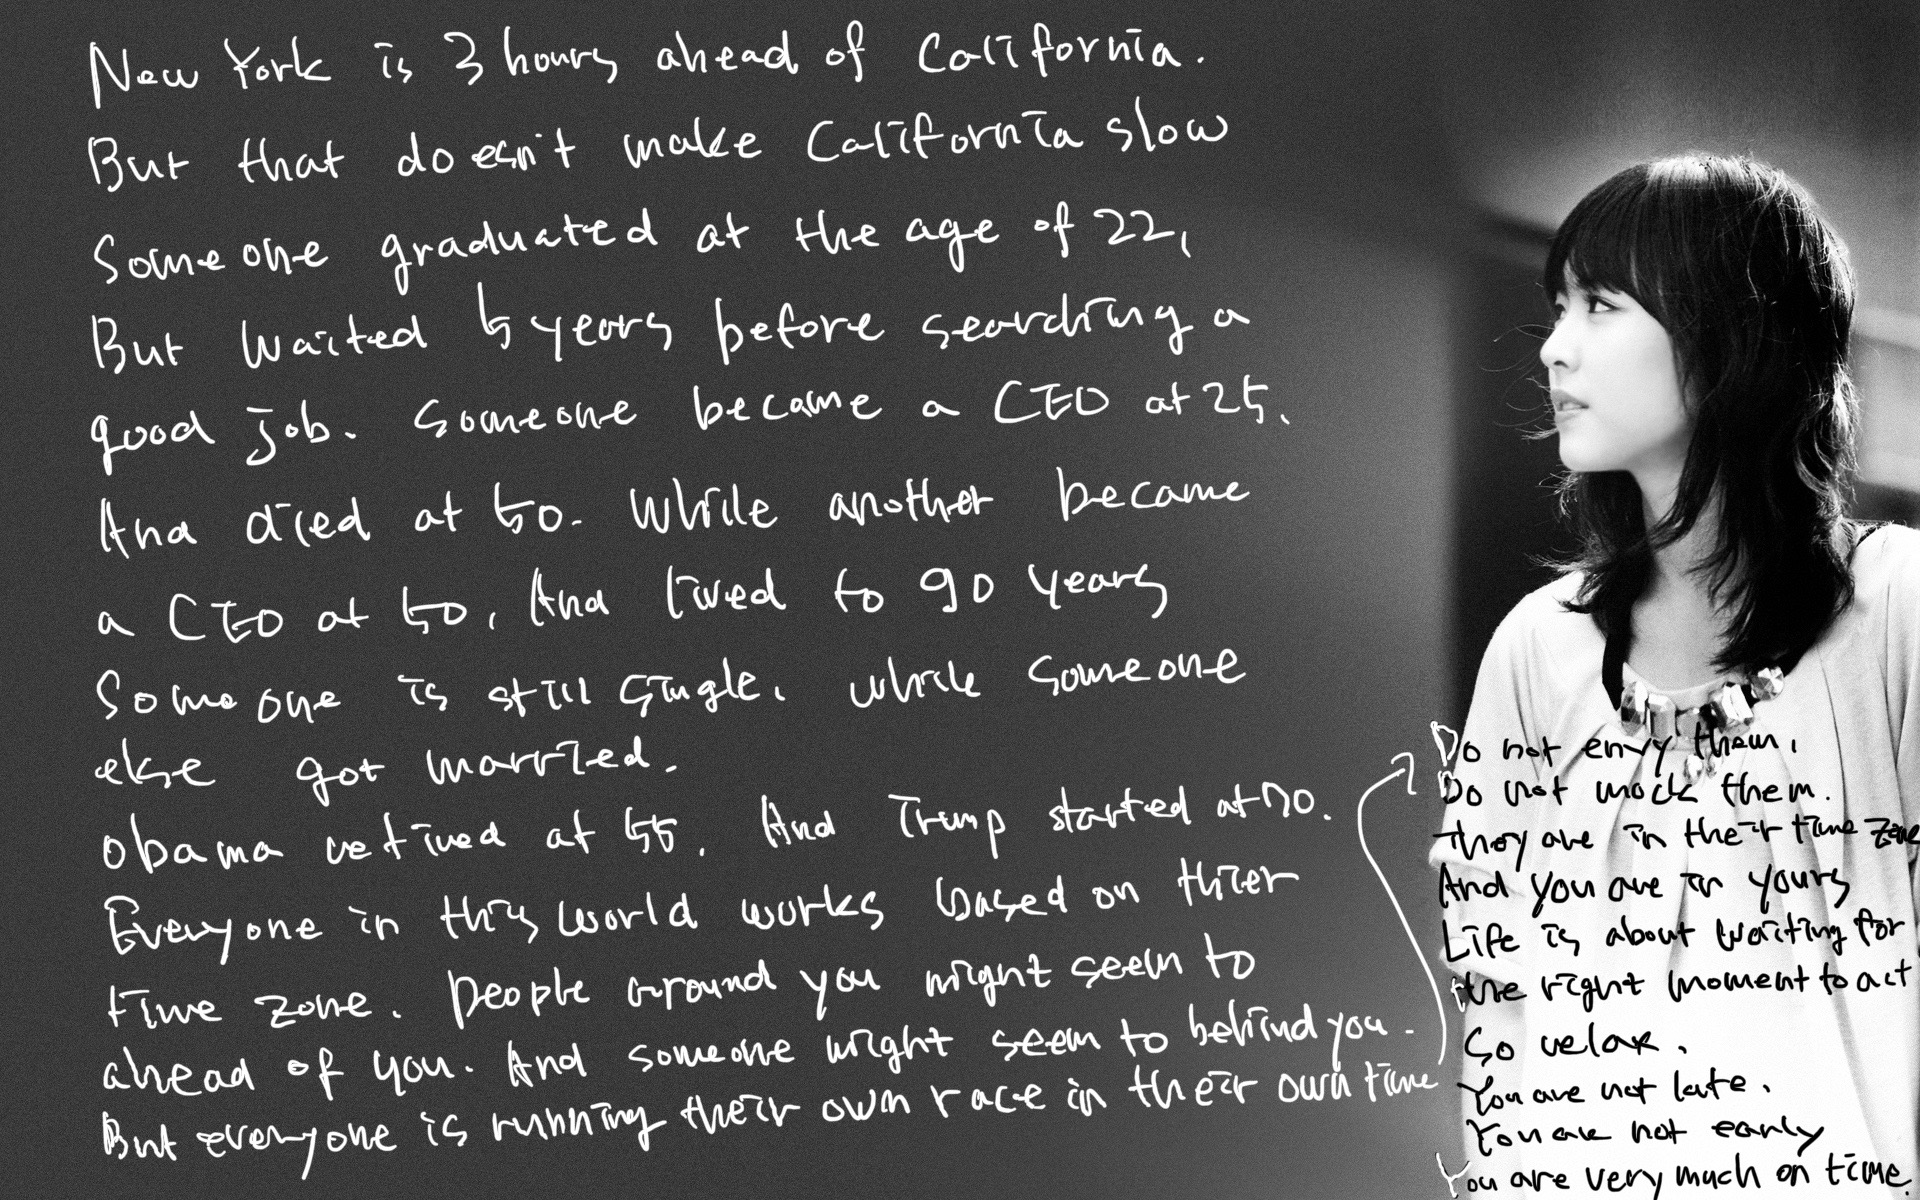 New York is 3 hours ahead of California.
But that doesn't make California slow
Someone graduated at the age of 22,
But waited 5 years before searching a
good job. Someone became a CEO at 25.
And died at 50. While another became
a CEO at 50, And lived to 90 years
Someone is still single. while someone
else got married.
Obama retired at 55. And Trump started at 70.
Everyone in this world works based on thier
time zone. People around you might seem to
ahead of you. And someone might seem to behind you.
But everyone is running their own race in their own time
Do not envy them.
Do not mock them.
They are in their time zone
And you are in yours
Life is about waiting for
the right moment to act
So relax.
You are not late.
You are not early
You are very much on time.